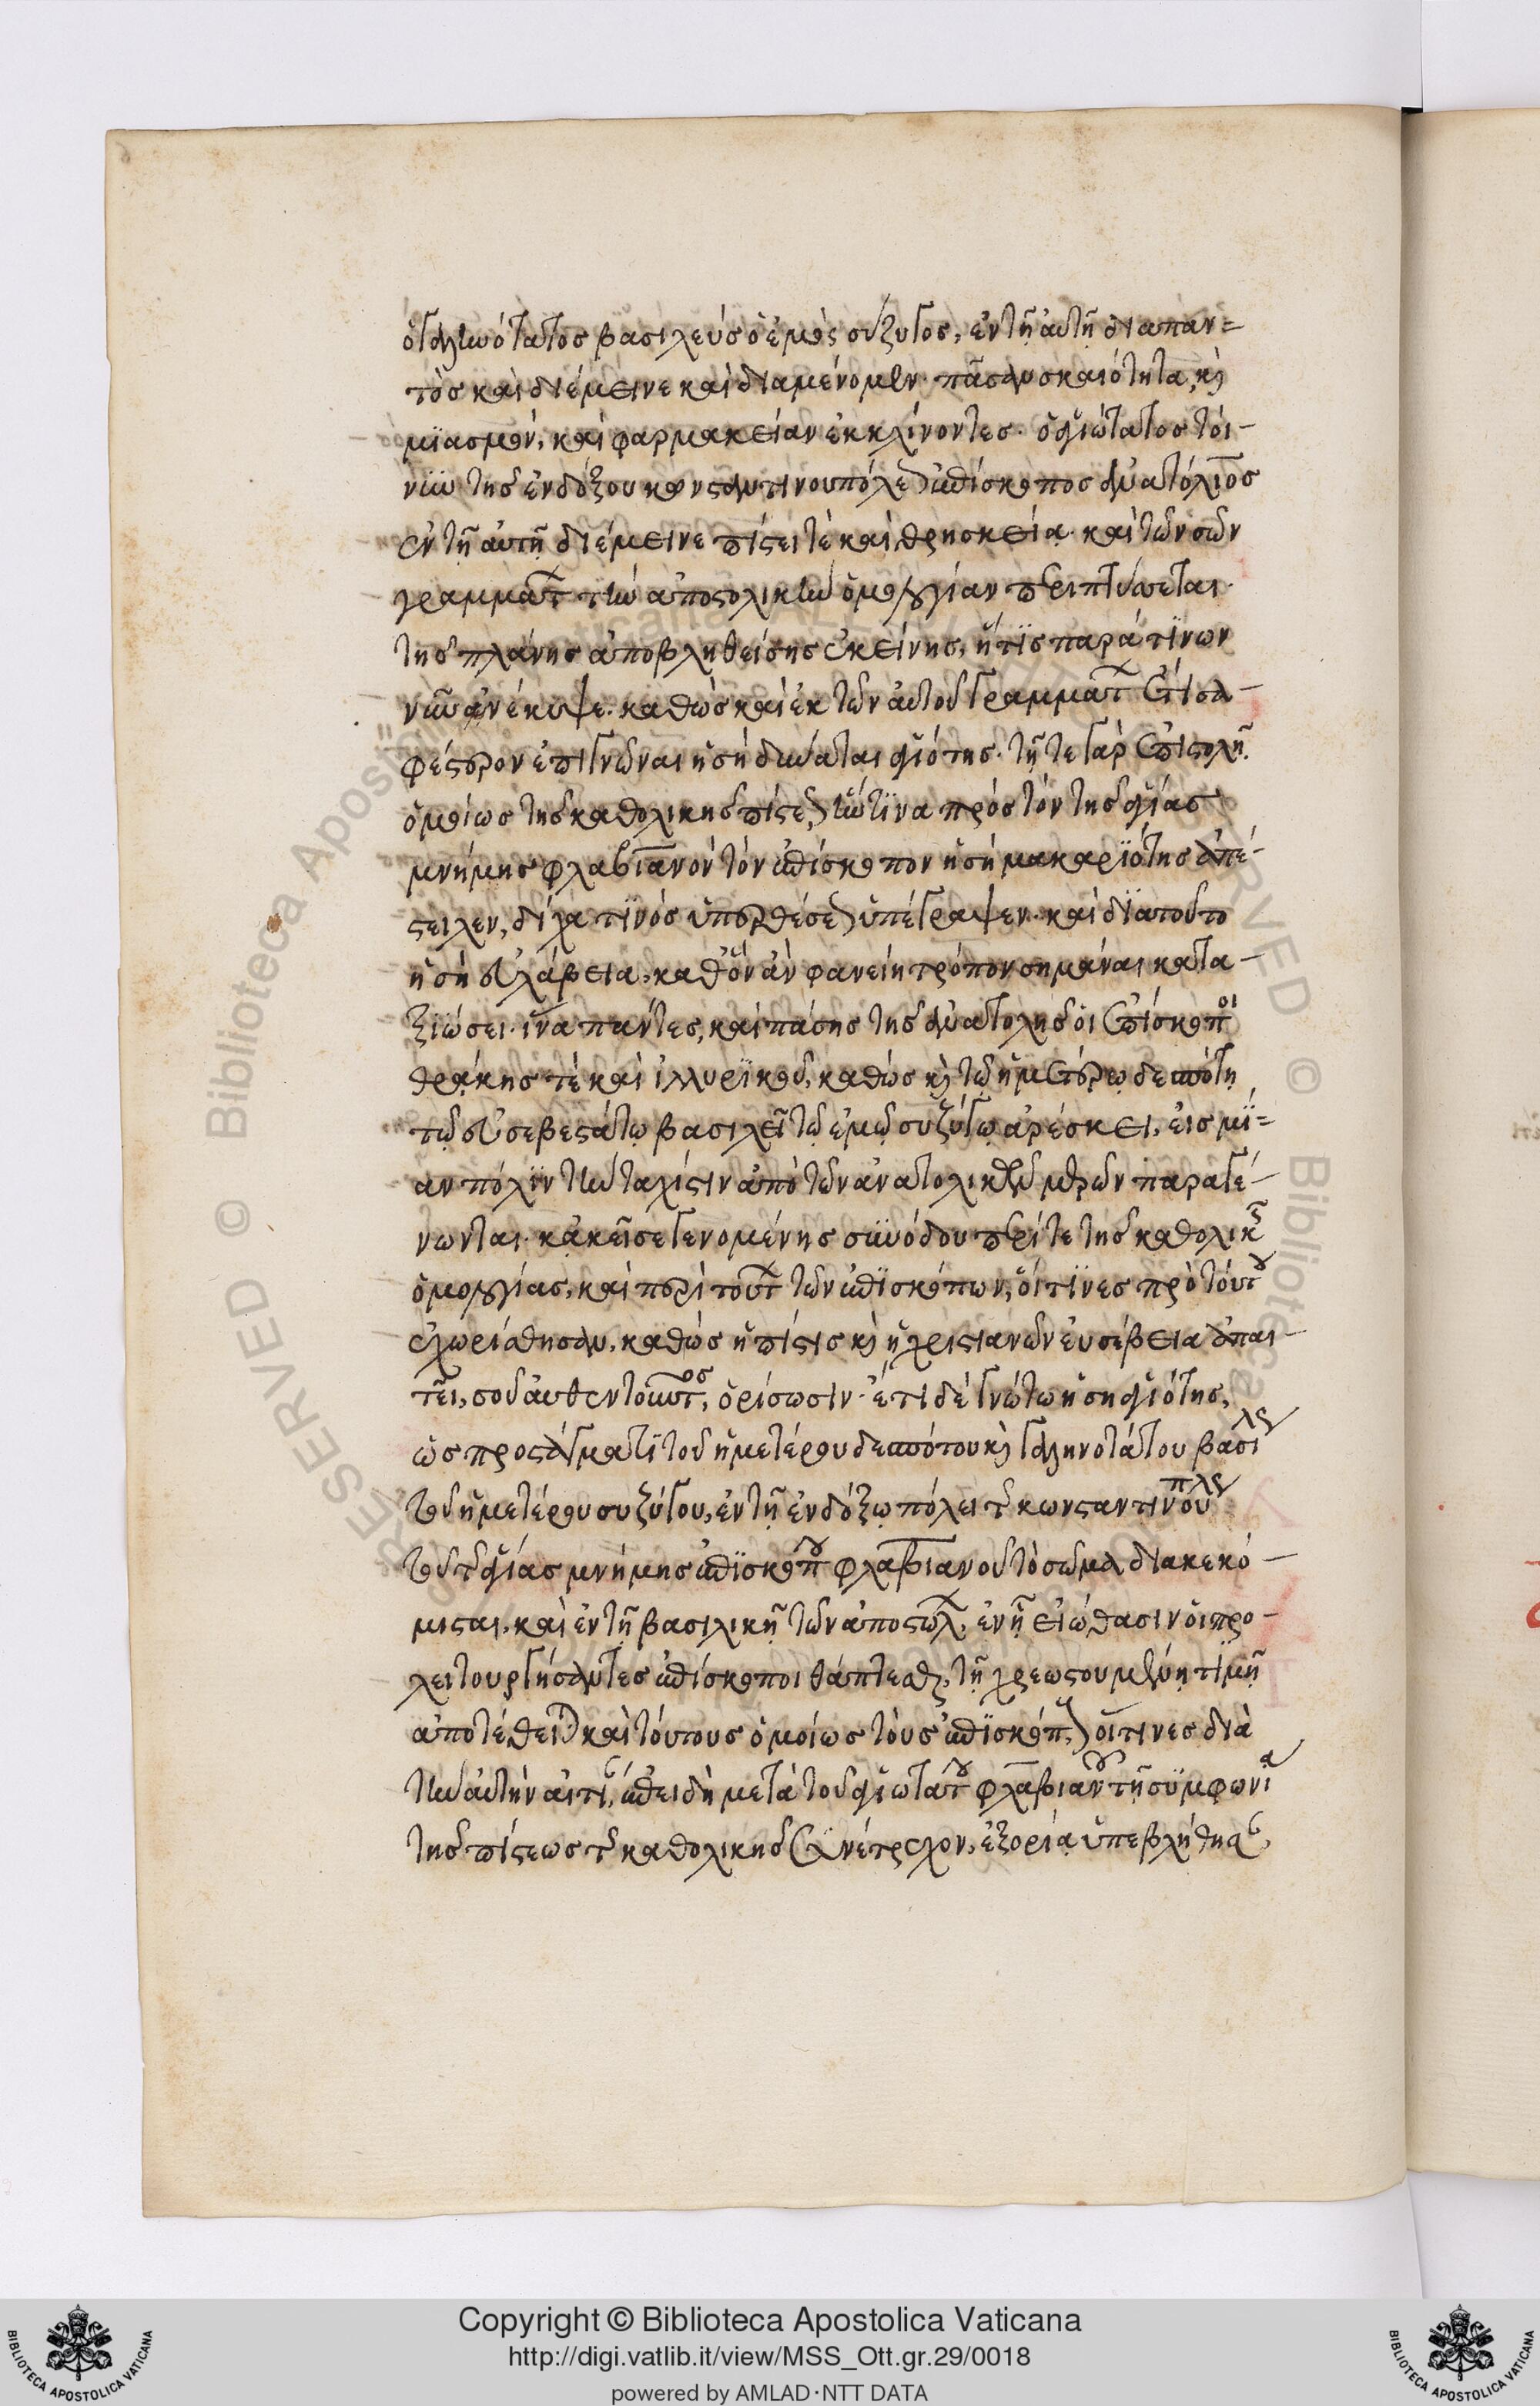 ὁ γαληνότατος βασιλεὺς ὁ ἐμὸς σύζυγος, ἐν τῇ αὐτῇ διαπαν=
τὸς καὶ διέμεινε καὶ διαμένομεν· πᾶσαν σκαιότητα, καὶ
μϊασμὸν, καὶ φαρμακείαν ἐκκλίνοντες. ὁ ἁγιώτατος τοί-
νυν τῆς ἐνδόξου κωνσταντινουπόλεως ἐπίσκοπος ἀνατόλιος
ἐν τῇ αὐτῇ διέμεινε πίστει τὲ καὶ θρησκείᾳ· καὶ τῶν σῶν
γραμμάτ τὴν ἀποστολικὴν ὁμολογίαν περιπτύσεται·
τῆς πλάνης ἀποβληθείσης ἐκείνης, ἥτϊς παρά τϊνων
νῦν ἀνέκυψε· καθὼς καὶ ἐκ τῶν αὐτοῦ γραμμάτ ἔτι σα-
φέστερον ἐπιγνῶναι ἡ σὴ δύναται ἁγιότης. τῇ τε γὰρ ἐπιστολῇ
ὁμοίως τῆς καθολικῆς πίστεως, ἥντϊνα πρὸς τὸν τῆς ἁγίας
μνήμης φλαβϊανὸν τὸν ἐπίσκοπον ἡ σὴ μακαρϊότης ἀπέ-
στειλεν, δίχα τϊνός ὑπερθέσεως ὑπέγραψεν. καὶ δϊατοῦτο
ἡ σὴ εὐλάβεια, καθ' ὃν ἂν φανείη τρόπον σημάναι κατα-
ξϊώσει. ἵνα πάντες, καὶ πάσης τῆς ἀνατολῆς οἱ ἐπίσκοποι
θράκης τὲ καὶ ἰλλυρϊκοῦ, καθὼς καὶ τῷ ἡμετέρῳ δεσπότῃ
τῷ εὐσεβεστάτῳ βασιλεῖ τῷ ἐμῷ συζύγῳ ἀρέσκει, εἰς μϊ=
αν πόλϊν τὴν ταχίστην ἀπὸ τῶν ἀνατολικῶν μερῶν παραγέ-
νωνται. κἀκεῖσε γενομένης συνόδου περί τε τῆς καθολικῆς
ὁμολογίας, καὶ περὶ τούτ τῶν ἐπϊσκόπων, οἵτϊνες πρὸ τούτου
ἐχωρίσθησαν, καθὼς ἡ πίστις καὶ ἡ χριστιανῶν εὐσέβεια ἀπαι-
τεῖ, σοῦ αὐθεντοῦντος, ὁρίσωσιν. ἔτι δὲ γνώτω ἡ σὴ ἁγιότης,
ὡς προστάγματϊ τοῦ ἡμετέρου δεσπότου καὶ γαληνοτάτου βασιλέως
τοῦ ἡμετέρου συζύγου, ἐν τῇ ἐνδόξῳ πόλει τῇ κωνσταντινουπόλει
τοῦ τῆς ἁγίας μνήμης ἐπϊσκόπου φλαβιανοῦ τὸ σῶμα διακεκό-
μισται, καὶ ἐν τῇ βασιλικῇ τῶν ἀποστόλ, ἐν ᾗ εἰώθασιν οἱ προ-
λειτουργήσαντες ἐπίσκοποι θάπτεσθαι, τῇ χρεωστουμένῃ τϊμῇ
ἀποτέθειται καὶ τούτους ὁμοίως τοὺς ἐπϊσκόπους οἵτινες διὰ
τὴν αὐτὴν αἰτίαν, ἐπειδὴ μετὰ τοῦ ἁγιωτάτου φλαβιανοῦ τῇ συμφωνία
τῆς πίστεως τῆς καθολικῆς συνέτρεχον, ἐξορίᾳ ὑπεβλήθησαν,
Copyright © Biblioteca Apostolica Vaticana
http://digi.vatlib.it/view/MSS_Ott.gr.29/0018
powered by AMLAD·NTT DATA